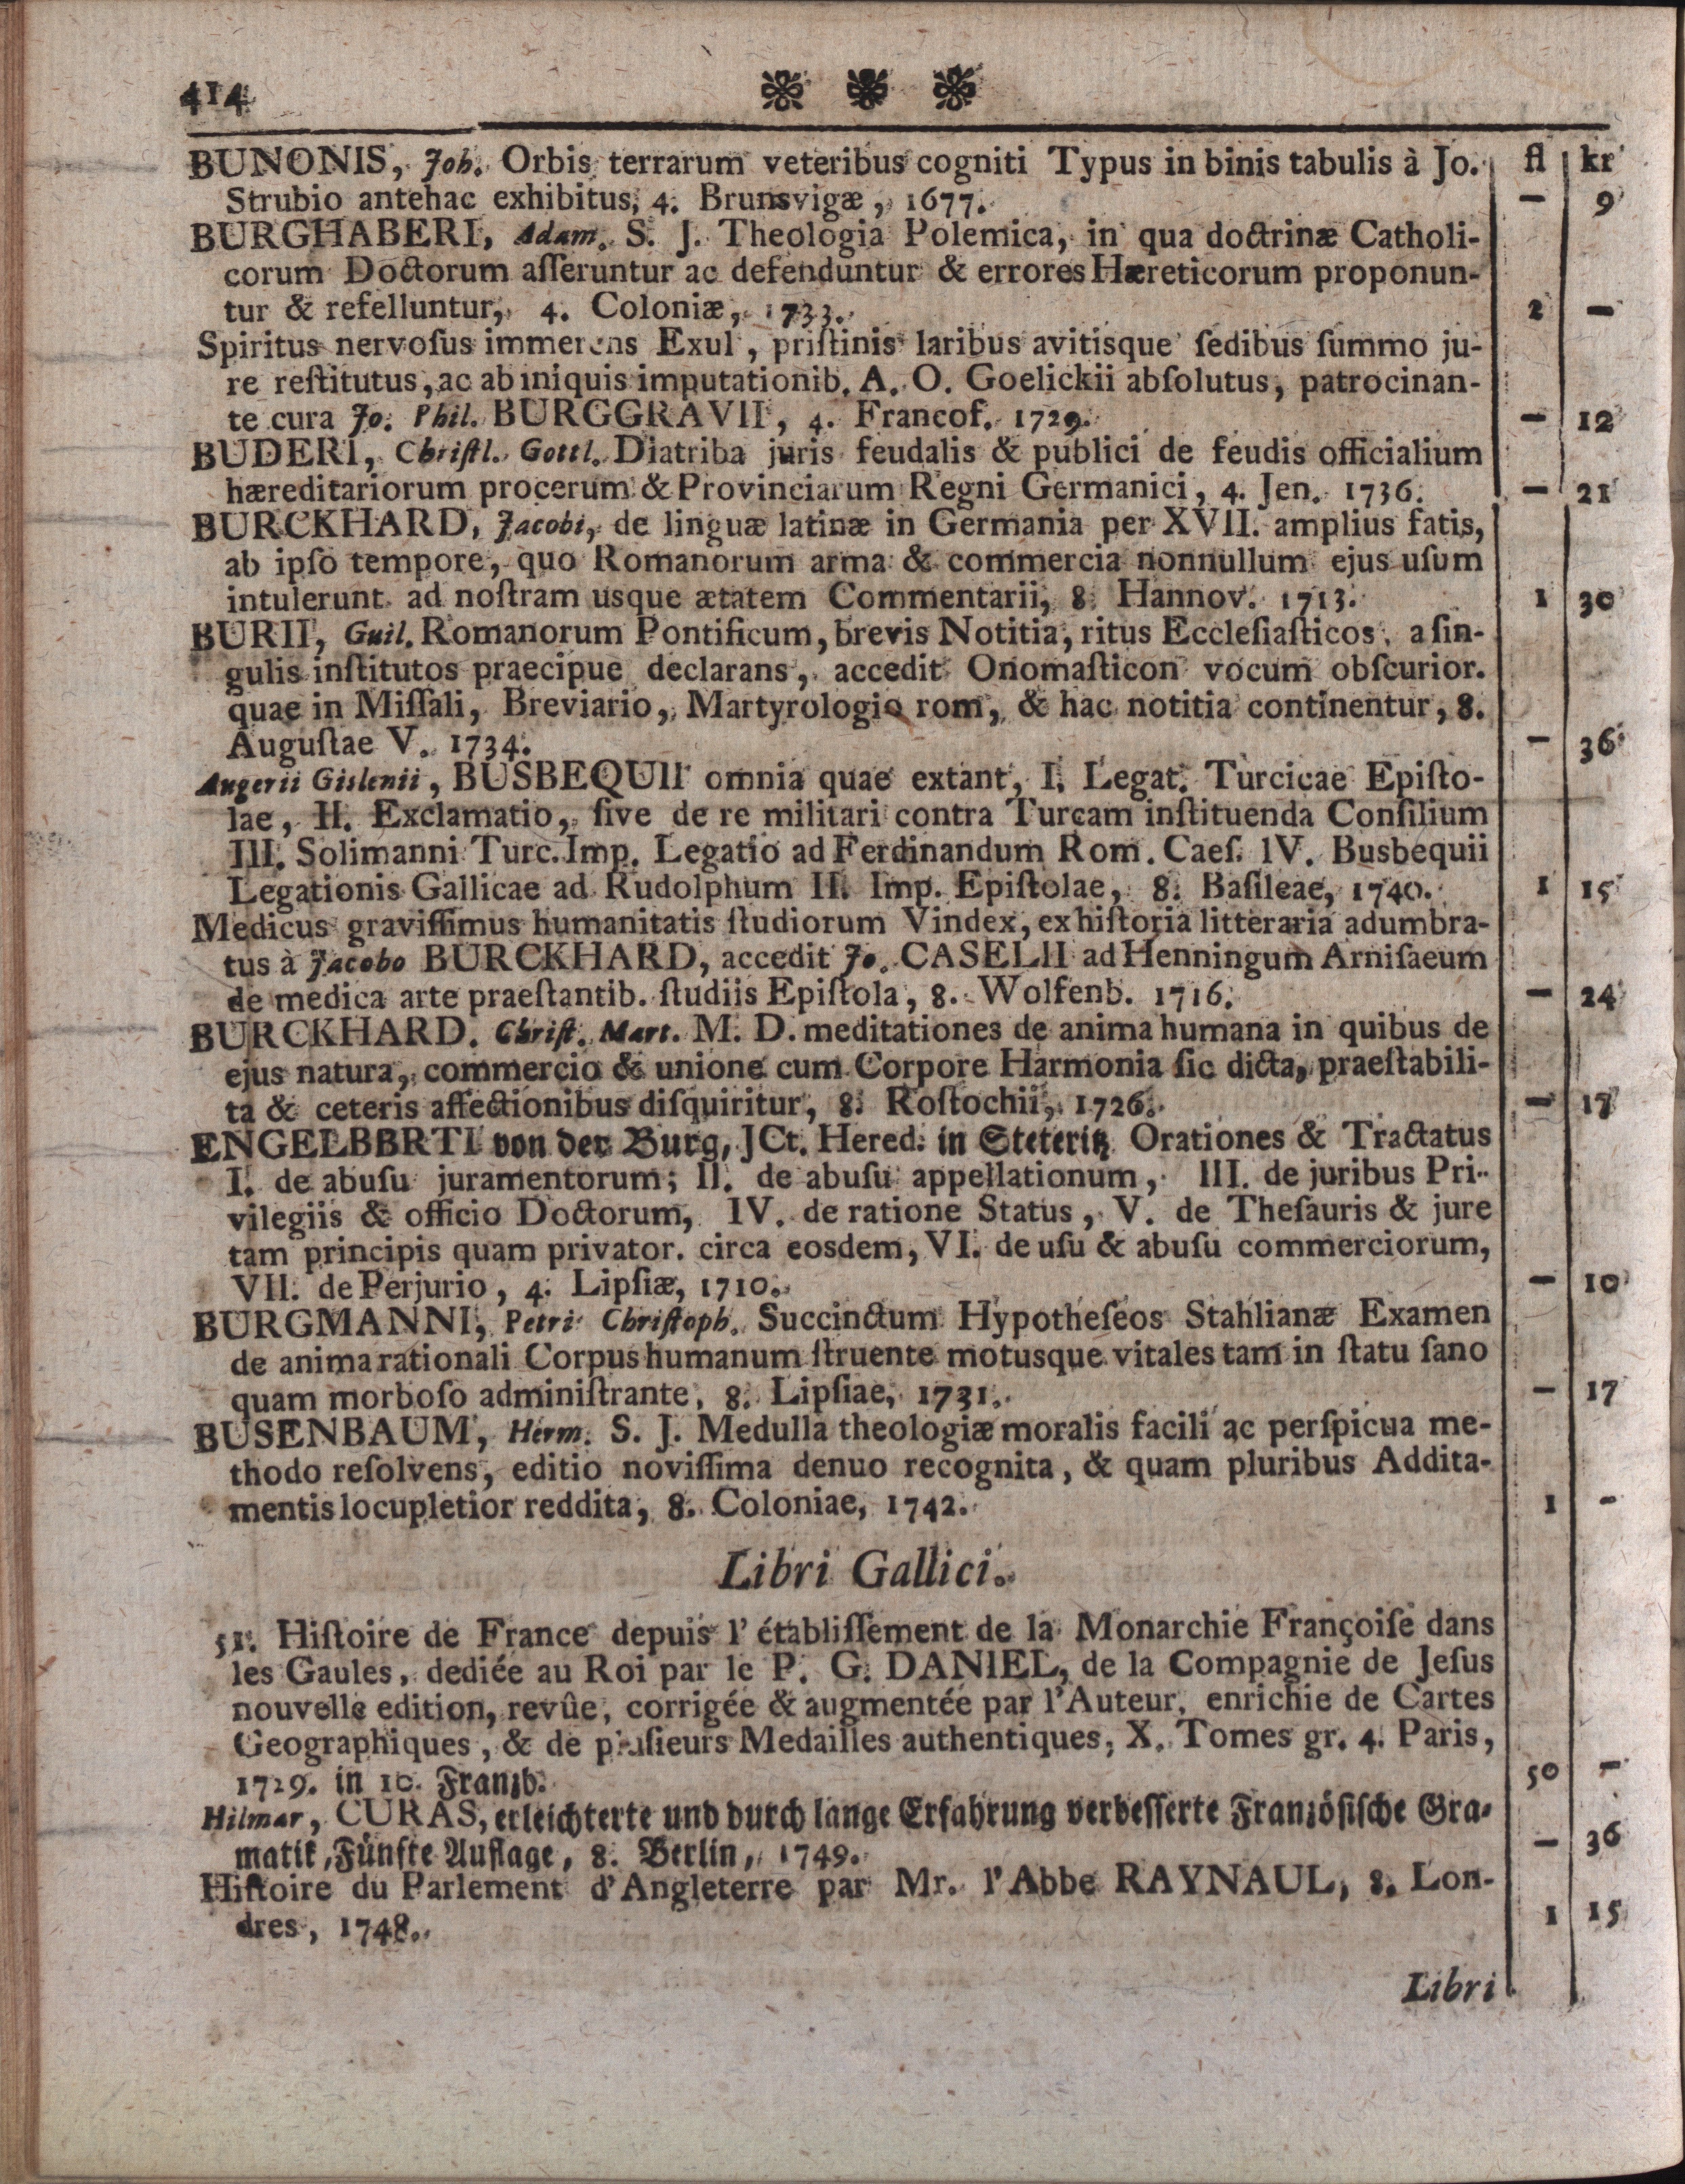 414 ❃ ❃ ❃
BUNONIS, Joh. Orbis terrarum veteribus cogniti Typus in binis tabulis à Jo. fl kr
Strubio antehac exhibitus, 4. Brunsvigæ, 1677. — 9
BURGHABERI, Adam. S. J. Theologia Polemica, in qua doctrinæ Catholi-
corum Doctorum aſſeruntur ac defenduntur & errores Hæreticorum proponun-
tur & refelluntur, 4. Coloniæ, 1733. 2 —
Spiritus nervoſus immerens Exul, priſtinis laribus avitisque ſedibus ſummo ju-
re reſtitutus, ac ab iniquis imputationib. A. O. Goelickii abſolutus, patrocinan-
te cura Jo. Phil. BURGGRAVII, 4. Francof. 1729. — 12
BUDERI, Chriſtl. Gottl. Diatriba juris feudalis & publici de feudis officialium
hæreditariorum procerum & Provinciarum Regni Germanici, 4. Jen. 1736. — 21
BURCKHARD, Jacobi, de linguæ latinæ in Germania per XVII. amplius fatis,
ab ipſo tempore, quo Romanorum arma & commercia nonnullum ejus uſum
intulerunt ad noſtram usque ætatem Commentarii, 8. Hannov. 1713. 1 30
BURII, Guil. Romanorum Pontificum, brevis Notitia, ritus Eccleſiaſticos, a ſin-
gulis inſtitutos praecipue declarans, accedit Onomaſticon vocum obſcurior.
quae in Miſſali, Breviario, Martyrologio rom, & hac notitia continentur, 8.
Auguſtae V. 1734. — 36
Augerii Gislenii, BUSBEQUII omnia quae extant, I. Legat. Turcicae Epiſto-
lae, II. Exclamatio, ſive de re militari contra Turcam inſtituenda Conſilium
III. Solimanni Turc. Imp. Legatio ad Ferdinandum Rom. Caeſ. IV. Busbequii
Legationis Gallicae ad Rudolphum II. Imp. Epiſtolae, 8. Baſileae, 1740. 1 15
Medicus graviſſimus humanitatis ſtudiorum Vindex, ex hiſtoria litteraria adumbra-
tus à Jacobo BURCKHARD, accedit Jo. CASELII ad Henningum Arniſaeum
de medica arte praeſtantib. ſtudiis Epiſtola, 8. Wolfenb. 1716. — 24
BURCKHARD. Chriſt. Mart. M. D. meditationes de anima humana in quibus de
ejus natura, commercio & unione cum Corpore Harmonia ſic dicta, praeſtabili-
ta & ceteris affectionibus diſquiritur, 8. Roſtochii, 1726. — 17
ENGELBBRTI von der Burg, JCt. Hered. in Steteritz Orationes & Tractatus
I. de abuſu juramentorum; II. de abuſu appellationum, III. de juribus Pri-
vilegiis & officio Doctorum, IV. de ratione Status, V. de Theſauris & jure
tam principis quam privator. circa eosdem, VI. de uſu & abuſu commerciorum,
VII. de Perjurio, 4. Lipſiæ, 1710. — 10
BURGMANNI, Petri Chriſtoph. Succinctum Hypotheſeos Stahlianæ Examen
de anima rationali Corpus humanum ſtruente motusque vitales tam in ſtatu ſano
quam morboſo adminiſtrante, 8. Lipſiae, 1731. — 17
BUSENBAUM, Herm. S. J. Medulla theologiæ moralis facili ac perſpicua me-
thodo reſolvens, editio noviſſima denuo recognita, & quam pluribus Addita-
mentis locupletior reddita, 8. Coloniae, 1742. 1 -
Libri Gallici.
51. Hiſtoire de France depuis l' établiſſement de la Monarchie Françoiſe dans
les Gaules, dediée au Roi par le P. G. DANIEL, de la Compagnie de Jeſus
nouvelle edition, revûe, corrigée & augmentée par l'Auteur, enrichie de Cartes
Geographiques, & de pluſieurs Medailles authentiques, X. Tomes gr. 4. Paris,
1729. in 10. Franzb. 50 —
Hilmar, CURAS, erleichterte und durch lange Erfahrung verbesserte Französische Gra-
matik, Fünfte Auflage, 8. Berlin, 1749. — 36
Hiſtoire du Parlement d'Angleterre par Mr. l'Abbe RAYNAUL, 8. Lon-
dres, 1748. 1 15
Libri